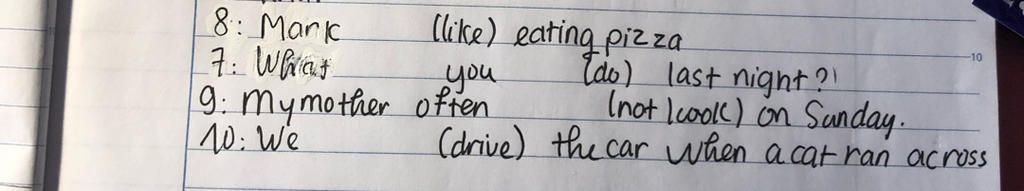 8: Mark (like) eating pizza
7: What you (do) last night?!
9: My mother often (not/cook) on Sunday.
10: We (drive) the car when a cat ran across